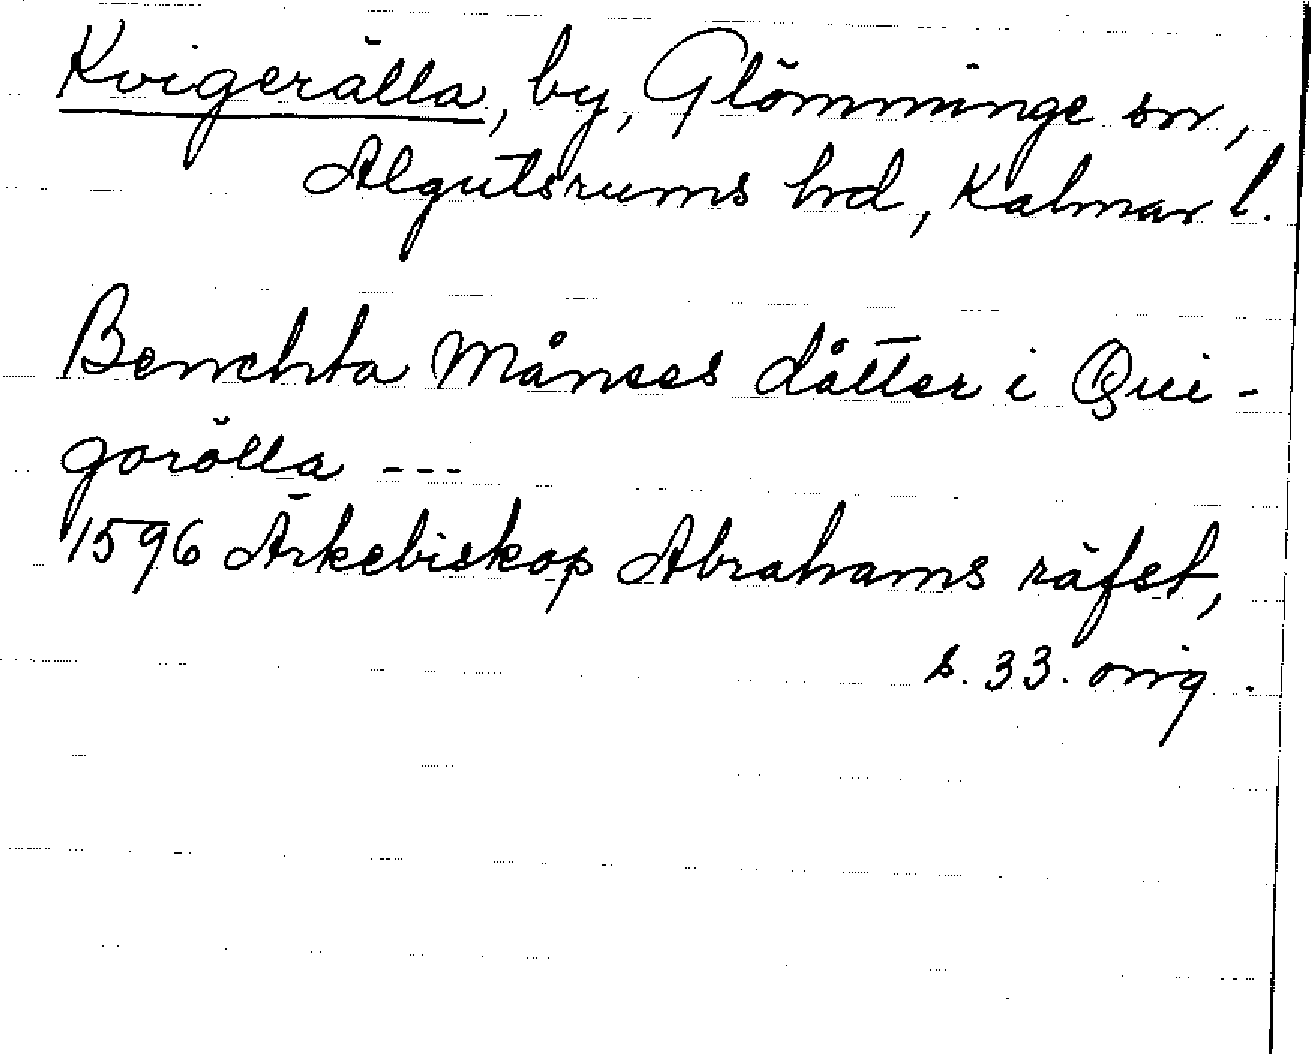 Kvigerälla, by, Glömminge sn,
Algutsrums hd, Kalmar l.
Benchta Månses dåtter i Qui-
gorölla ---
1596 Ärkebiskop Abrahams räfst,
s. 33. orig.